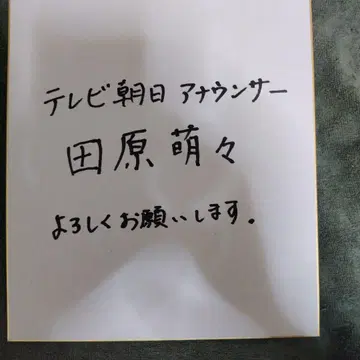 テレビ朝日 アナウンサー
田原萌々
よろしくお願いします。